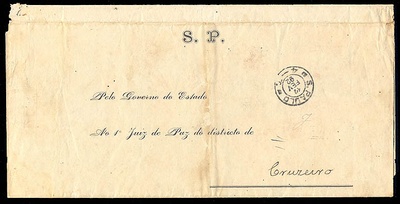 S. P.
S. PAULO
Pelo Governo do Estado
Ao 1º Juiz de Paz do districto de
Cruzeiro